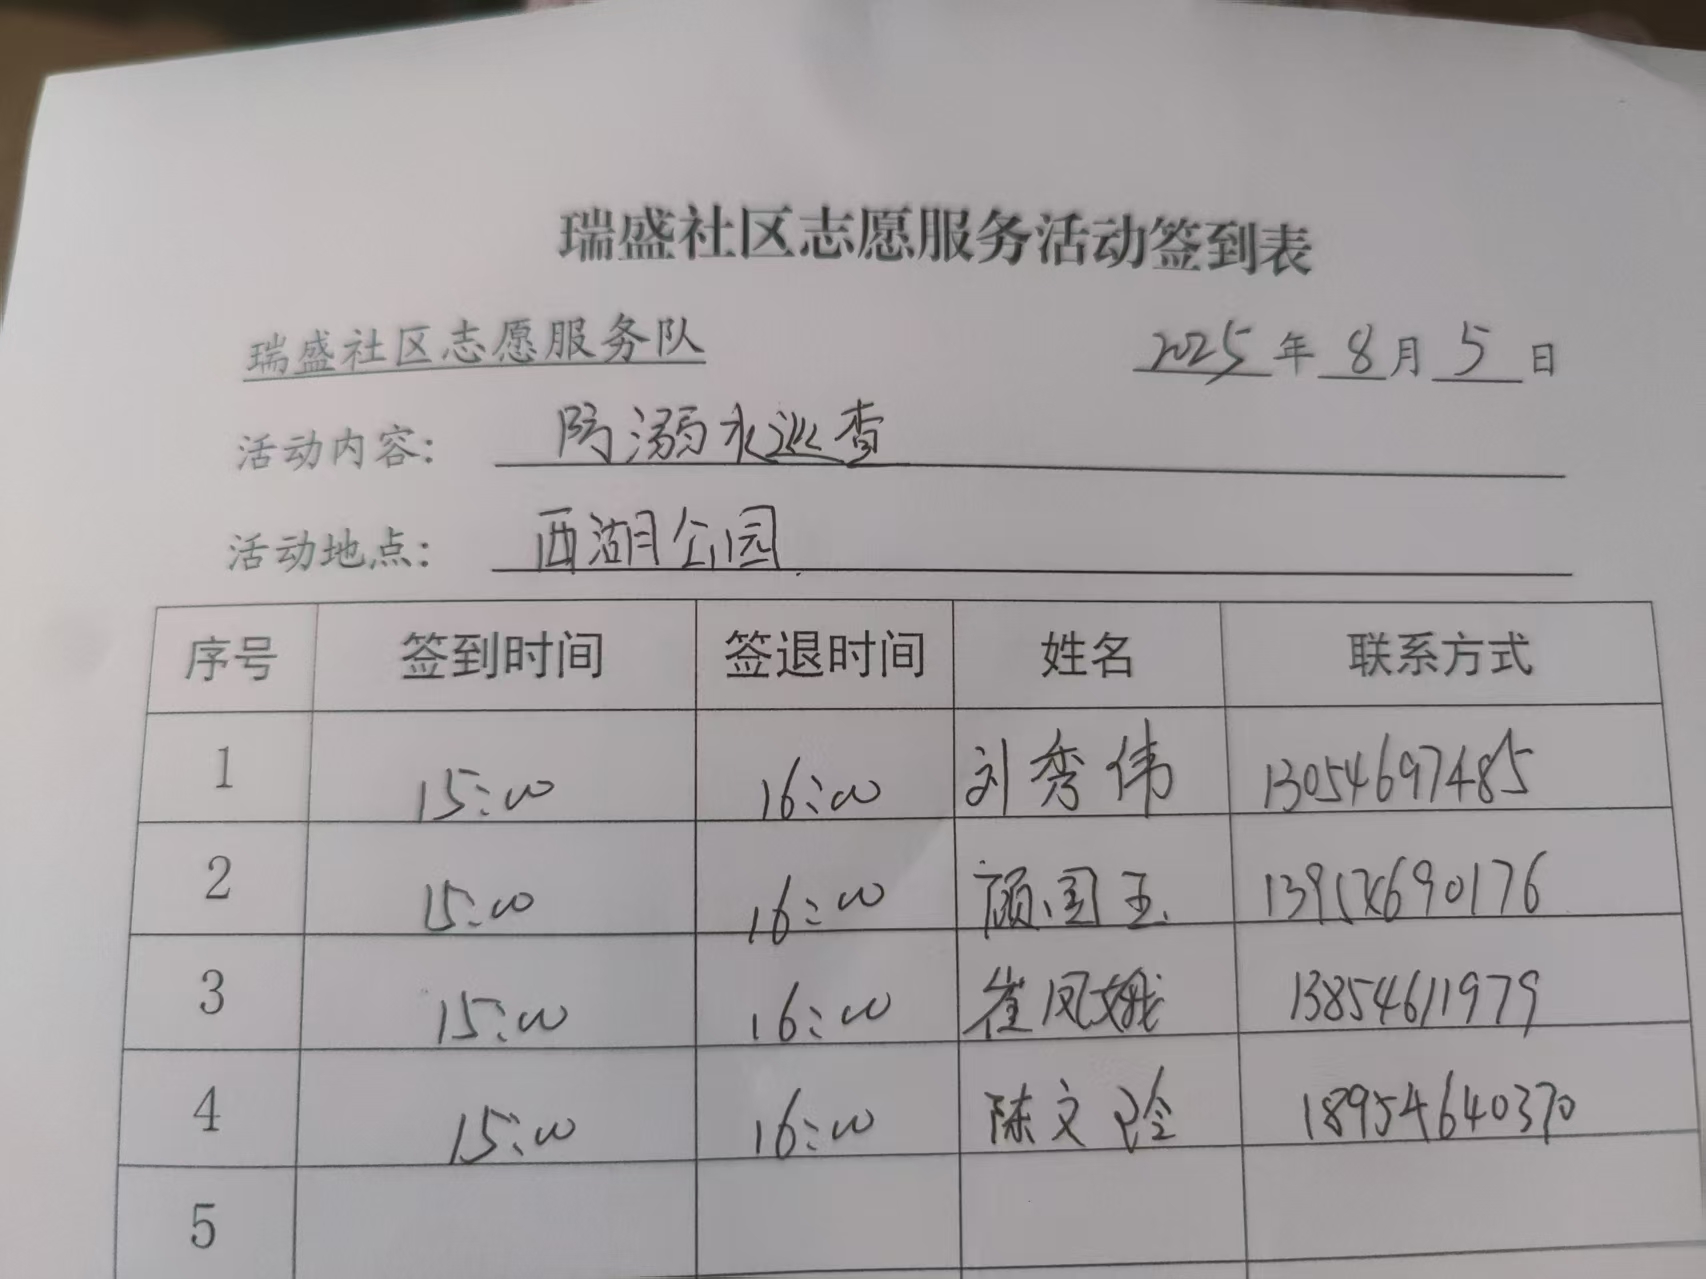 瑞盛社区志愿服务活动签到表
瑞盛社区志愿服务队 2025年8月5日
活动内容: 防溺水巡查
活动地点: 西湖公园
序号 签到时间 签退时间 姓名 联系方式
1 15:00 16:00 刘秀伟 13054697485
2 15:00 16:00 顾国玉 13954690176
3 15:00 16:00 崔凤娥 13854611979
4 15:00 16:00 陈文玲 18954640370
5